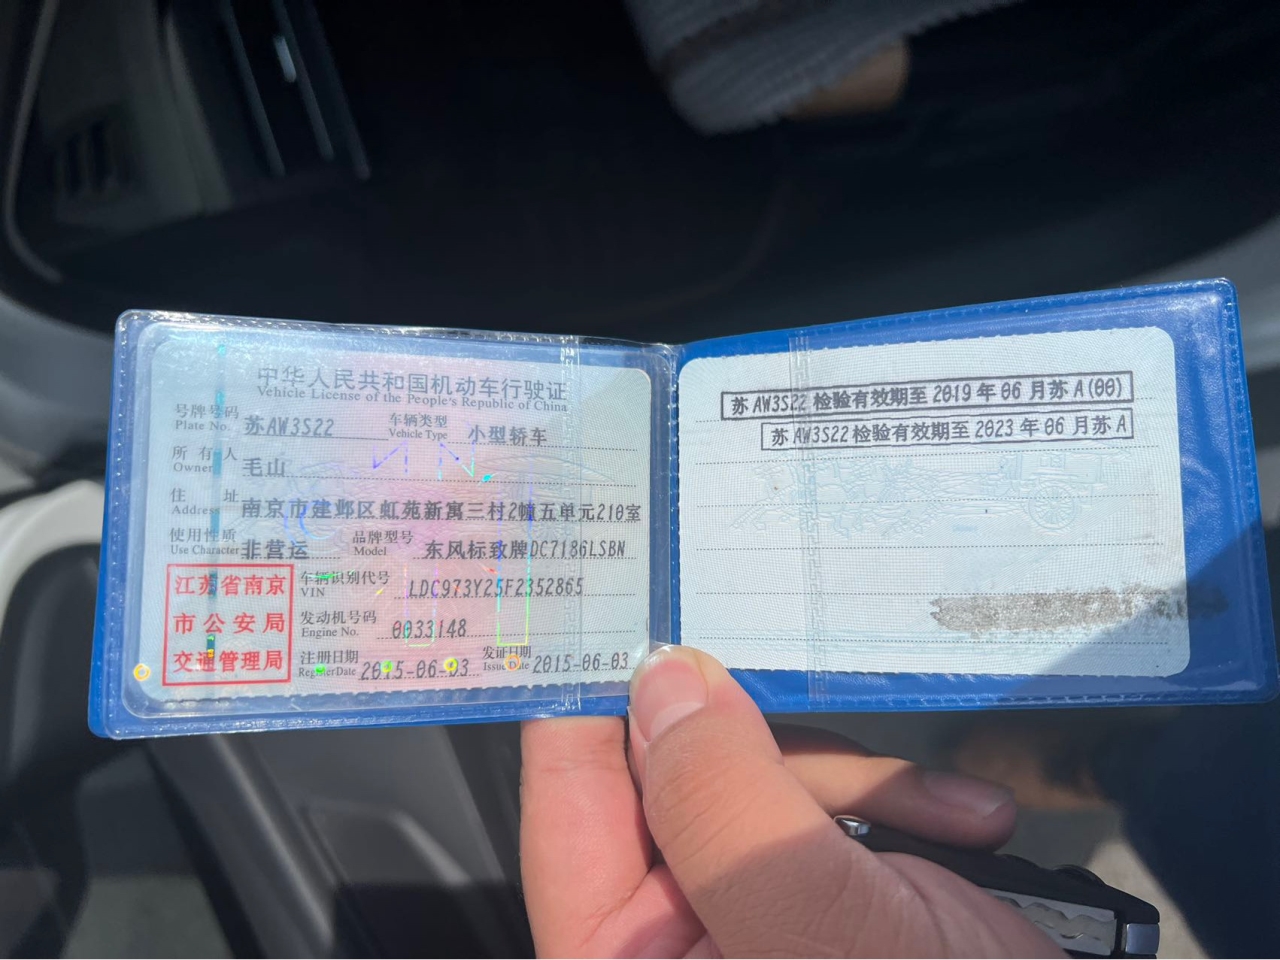 中华人民共和国机动车行驶证
Vehicle License of the People's Republic of China
号牌号码 苏AW3S22 车辆类型 小型轿车
Plate No. Vehicle Type
所有人 毛山
Owner
住址 南京市建邺区虹苑新寓三村2幢五单元210室
Address
使用性质 非营运 品牌型号 东风标致牌DC7186LSBN
Use Character Model
江苏省南京
市公安局
交通管理局
车辆识别代号 LDC973Y25F2352865
VIN
发动机号码 0033148
Engine No.
注册日期 2015-06-03 发证日期 2015-06-03
Register Date Issue Date
苏AW3S22检验有效期至2019年06月苏A(00)
苏AW3S22检验有效期至2023年06月苏A